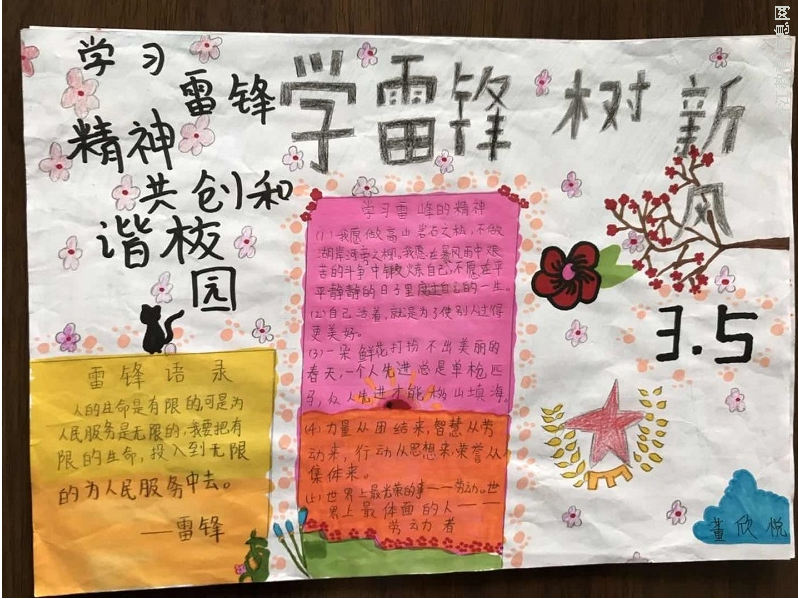 学习
雷锋
精神
共创和
谐校
园
学雷锋树新
风
3.5
学习雷峰的精神
(1)我愿做高山岩石之松,不做
湖岸河旁之柳。我愿在暴风雨中艰
苦的斗争中锻炼自己,不愿在平
平静静的日子里度过自己的一生。
(2)自己活着,就是为了使别人过得
更美好。
(3)一朵鲜花打扮不出美丽的
春天,一个人先进总是单枪匹
马,众人先进才能移山填海。
(4)力量从团结来,智慧从劳
动来,行动从思想来荣誉从
集体来。
(5)世界上最光荣的事——劳动。世
界上最体面的人——
劳动者
雷锋语录
人的生命是有限的,可是为
人民服务是无限的,我要把有
限的生命,投入到无限
的为人民服务中去。
——雷锋
董欣悦